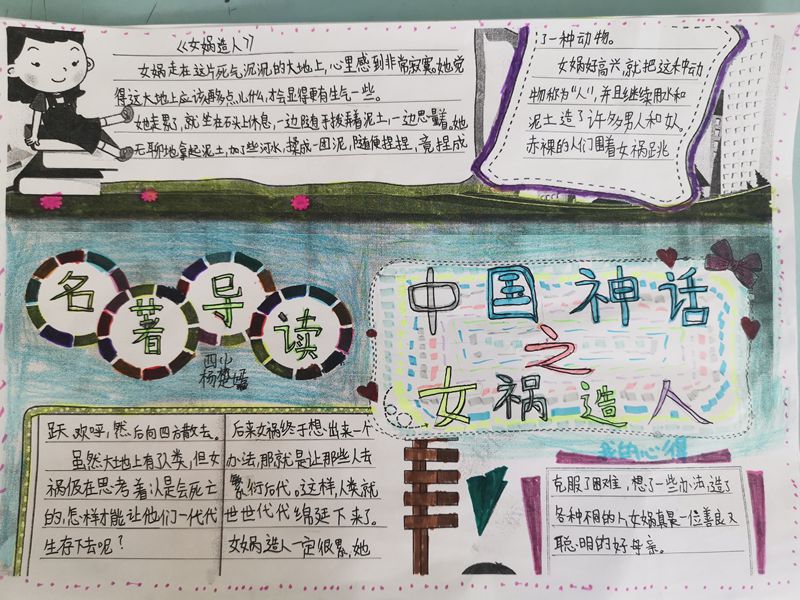 《女娲造人》
女娲走在这片死气沉沉的大地上,心里感到非常寂寞。她觉
得这大地上应该再多点儿什么,才会显得更有生气一些。
她走累了,就坐在石头上休息,一边随手拨弄着泥土,一边思量着。她
无聊地拿起泥土,加了些河水,揉成一团泥,随便捏捏,竟捏成
了一种动物。
女娲好高兴,就把这种动
物称为"人",并且继续用水和
泥土造了许多男人和女人。
赤裸的人们围着女娲跳
名著导读
四小
杨楚嫣
中国神话
之
女娲造人
跃、欢呼,然后向四方散去。
虽然大地上有了人类,但女
娲仍在思考着:人是会死亡
的,怎样才能让他们一代代
生存下去呢?
后来女娲终于想出来一个
办法,那就是让那些人去
繁衍后代。这样,人类就
世世代代绵延下来了。
女娲造人一定很累,她
我的心得
克服了困难,想了一些办法,造了
各种不同的人,女娲真是一位善良又
聪明的好母亲。